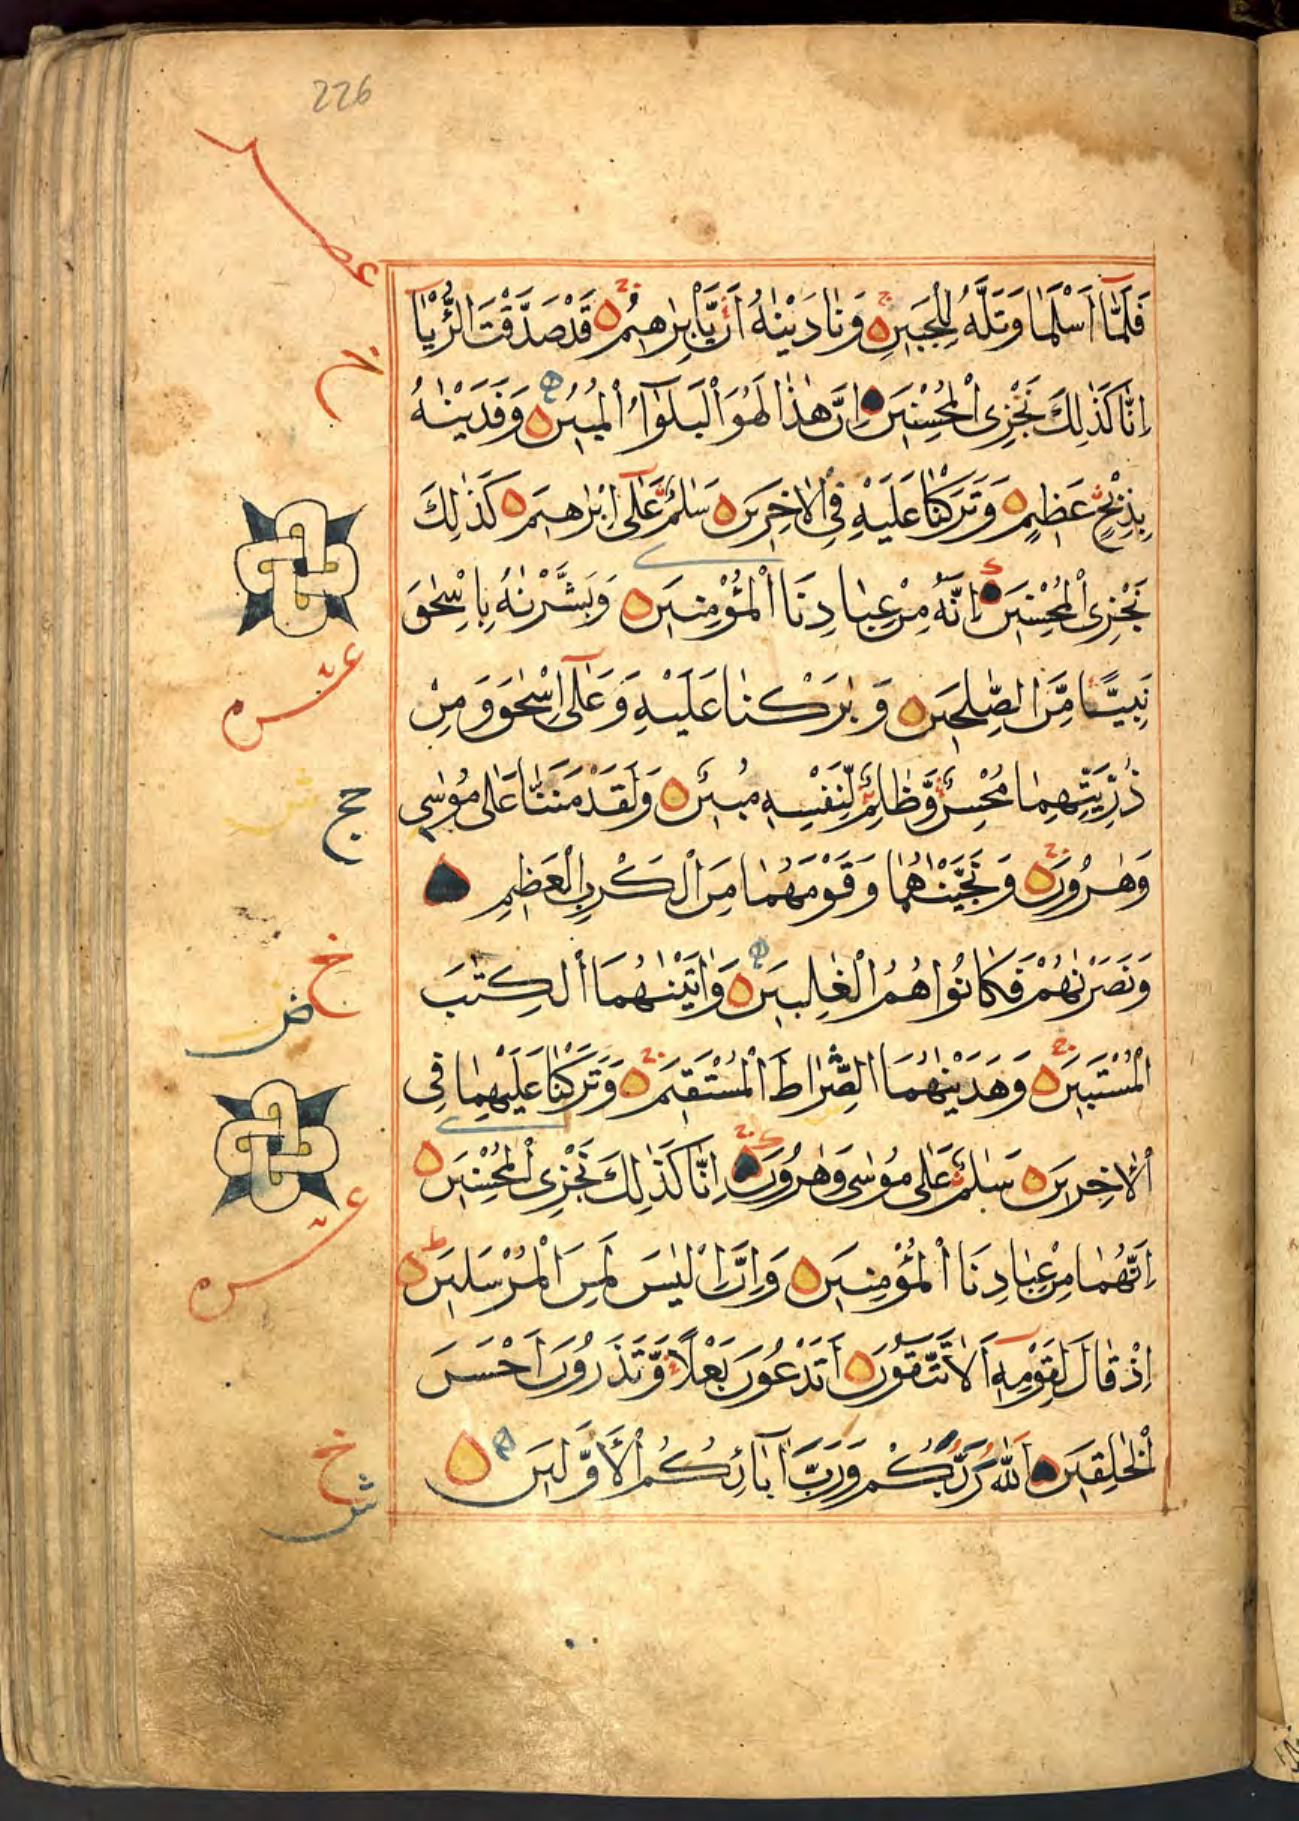 226
فَلَمَّا اَسْلَمَا وَتَلَّهُ لِلْجَبِينِ وَنَادَيْنٰهُ اَنْ يَّا اِبْرٰهِيْمُ قَدْ صَدَّقْتَ الرُّءْيَا
اِنَّا كَذٰلِكَ نَجْزِى الْمُحْسِنِيَن اِنَّ هٰذَا لَهُوَ الْبَلٰوٓاُ الْمُبِيْنُ وَفَدَيْنٰهُ
بِذِبْحٍ عَظِيمٍ وَتَرَكْنَا عَلَيْهِ فِى الْاٰخِرِيَن سَلٰمٌ عَلٰٓى اِبْرٰهِيمَ كَذٰلِكَ
نَجْزِى الْمُحْسِنِيَن اِنَّهُ مِنْ عِبَادِنَا الْمُؤْمِنِيَن وَبَشَّرْنٰهُ بِاِسْحٰقَ
نَبِيًّا مِّنَ الصّٰلِحِيَن وَبٰرَكْنَا عَلَيْهِ وَعَلٰٓى اِسْحٰقَ وَمِنْ
ذُرِّيَّتِهِمَا مُحْسِنٌ وَّظَالِمٌ لِّنَفْسِهِ مُبِيْنٌ وَلَقَدْ مَنَنَّا عَلٰى مُوْسٰى
وَهٰرُوْنَ وَنَجَّيْنٰهُمَا وَقَوْمَهُمَا مِنَ الْكَرْبِ الْعَظِيْمِ
وَنَصَرْنٰهُمْ فَكَانُوْا هُمُ الْغٰلِبِيَن وَاٰتَيْنٰهُمَا الْكِتٰبَ
الْمُسْتَبِيَن وَهَدَيْنٰهُمَا الصِّرَاطَ الْمُسْتَقِيْمَ وَتَرَكْنَا عَلَيْهِمَا فِى
الْاٰخِرِيَن سَلٰمٌ عَلٰى مُوْسٰى وَهٰرُوْنَ اِنَّا كَذٰلِكَ نَجْزِى الْمُحْسِنِيَن
اِنَّهُمَا مِنْ عِبَادِنَا الْمُؤْمِنِيَن وَاِنَّ اِلْيَاسَ لَمِنَ الْمُرْسَلِيَن
اِذْ قَالَ لِقَوْمِهِ اَلَا تَتَّقُوْنَ اَتَدْعُوْنَ بَعْلًا وَّتَذَرُوْنَ اَحْسَنَ
الْخٰلِقِيَن اَللّٰهُ رَبُّكُمْ وَرَبُّ اٰبَآئِكُمُ الْاَوَّلِيَن